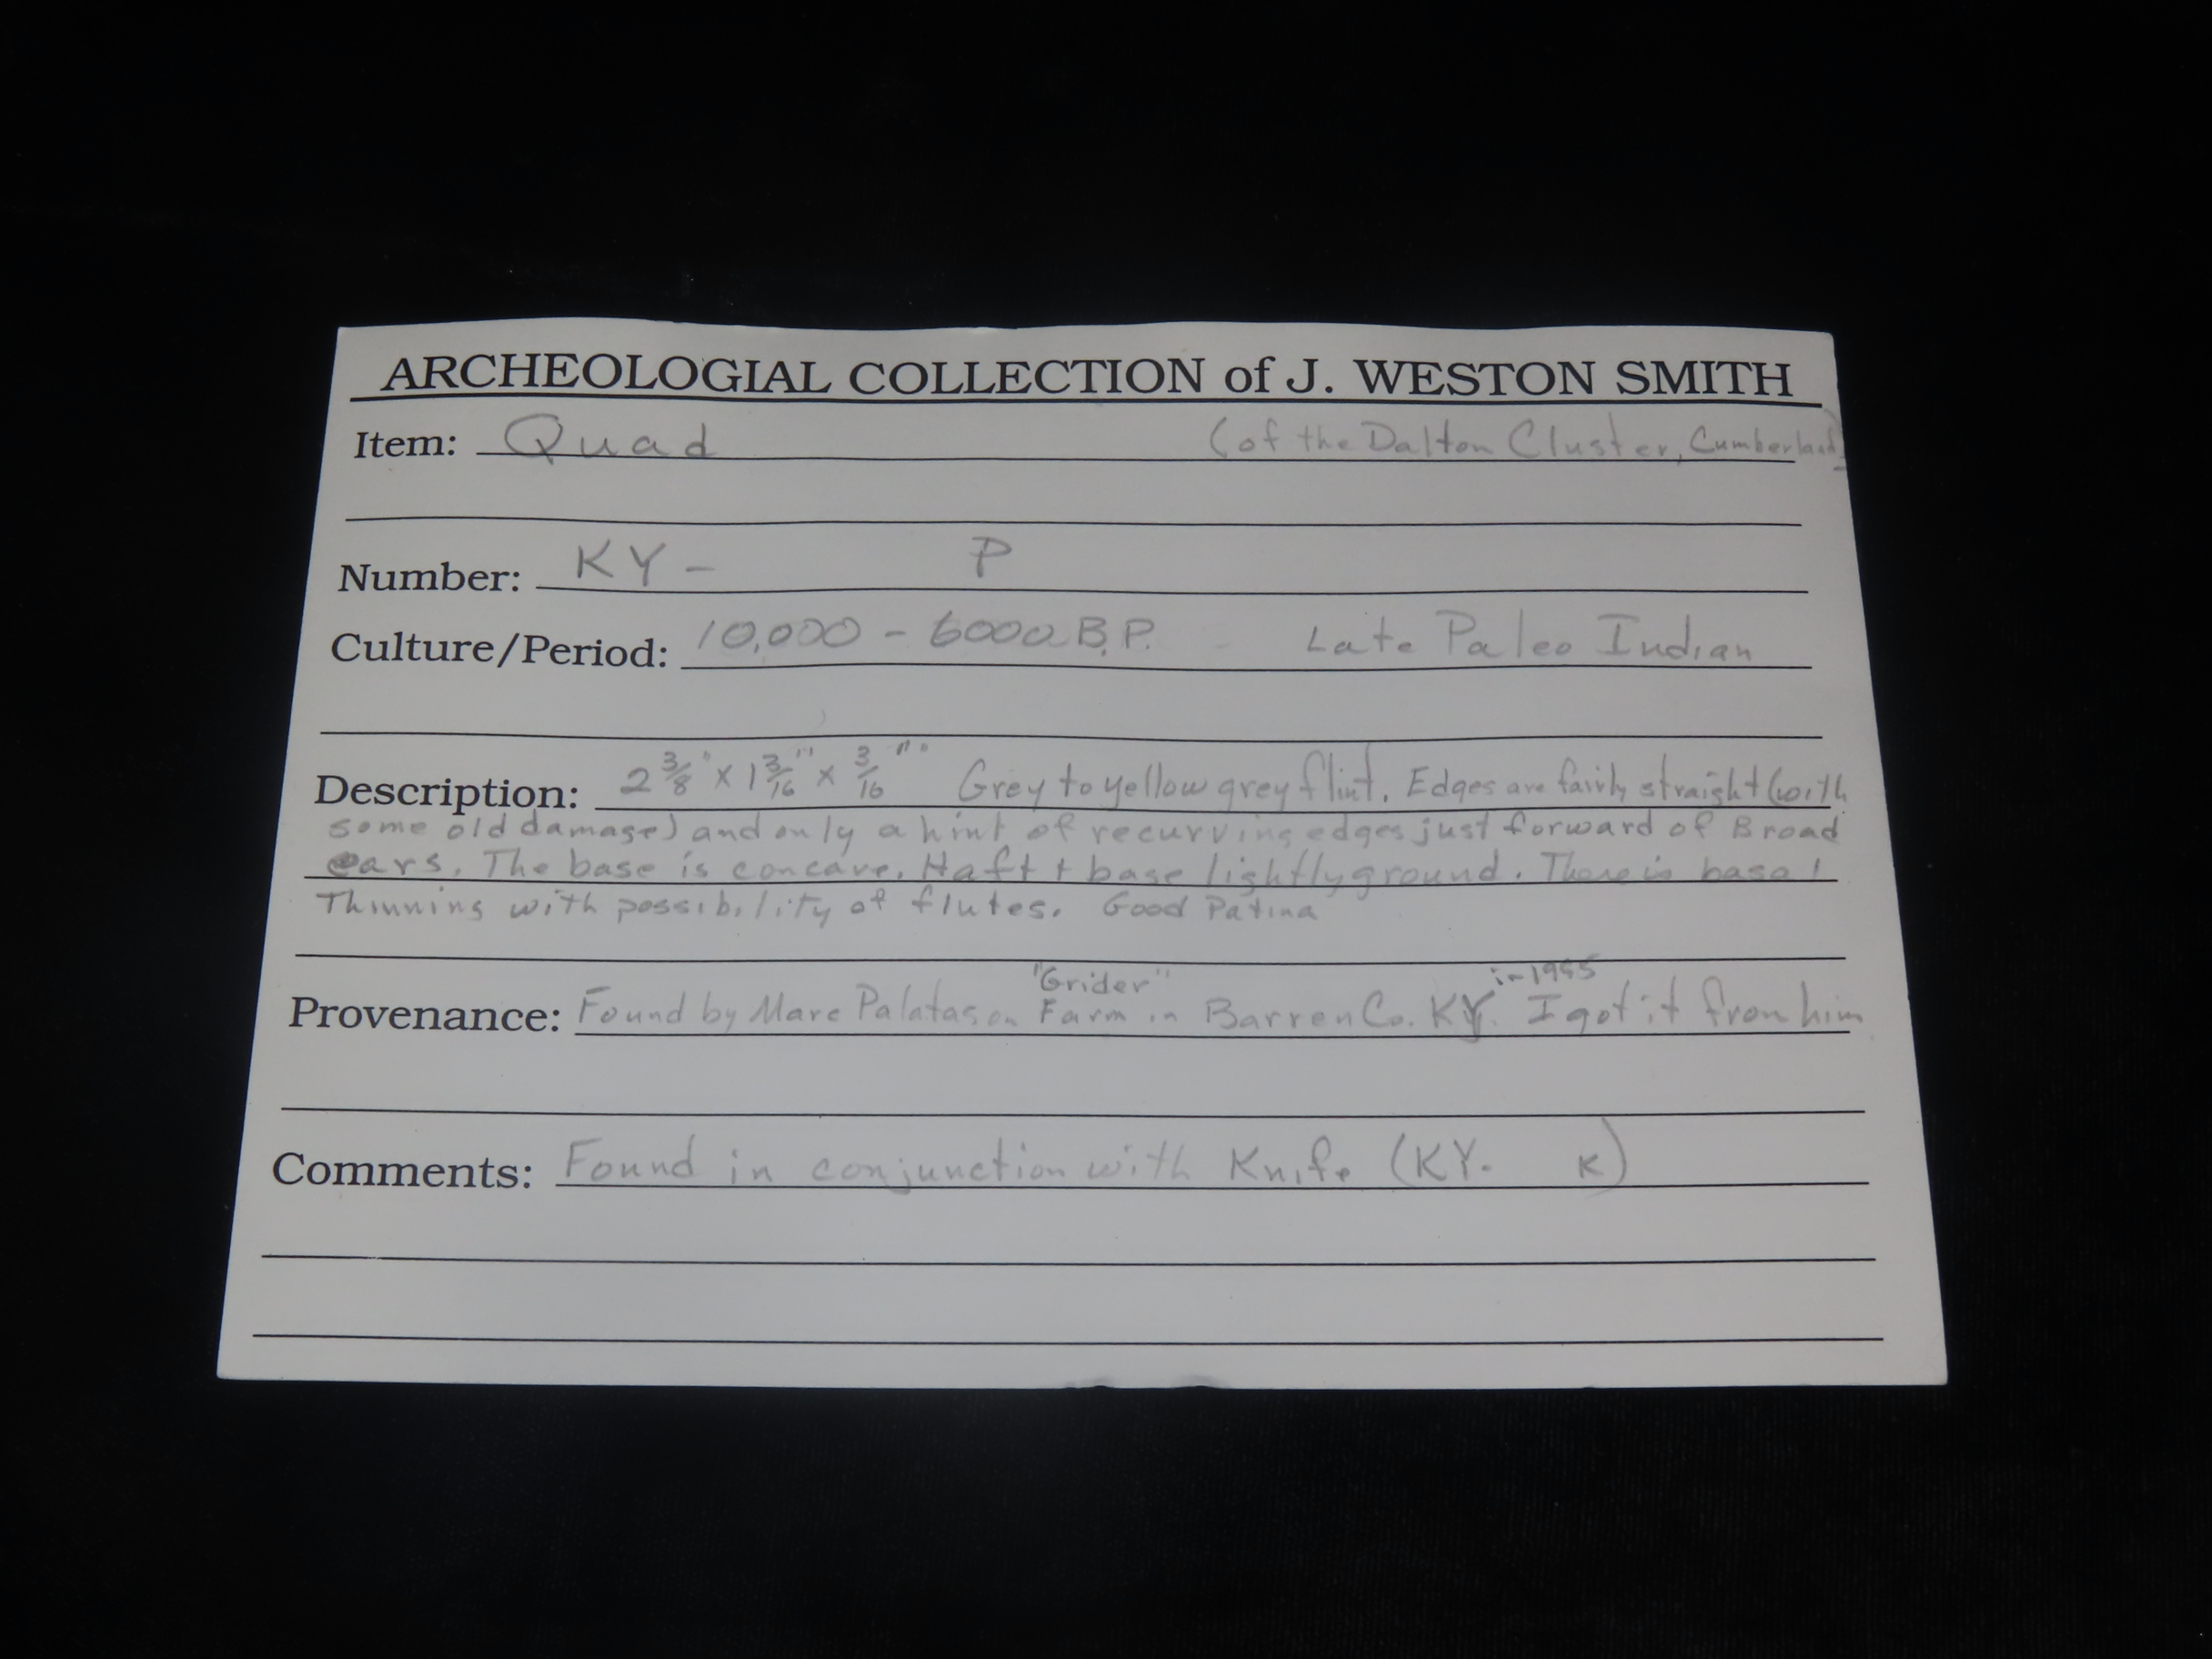 ARCHEOLOGIAL COLLECTION of J. WESTON SMITH
Item: Quad (of the Dalton Cluster, Cumberland)
Number: KY - P
Culture/Period: 10,000 - 6000 B.P. Late Paleo Indian
Description: 2 3/8" x 1 3/16" x 3/16" Grey to yellow grey flint. Edges are fairly straight (with
some old damage) and only a hint of recurving edges just forward of Broad
ears. The base is concave. Haft + base lightly ground. There is basal
Thinning with possibility of flutes. Good Patina
"Grider" in 1995
Provenance: Found by Marc Palatas on Farm in Barren Co. KY. I got it from him
Comments: Found in conjunction with Knife (KY. K)